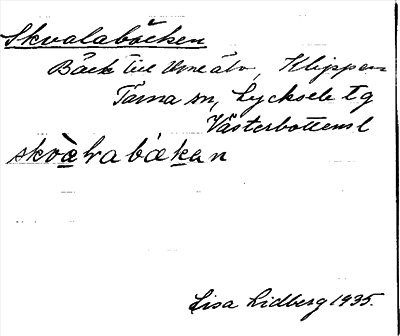 Skvalabäcken
Bäck till Ume älv, Klippen
Tärna sn, Lycksele tg
Västerbottens l
skvàlrabäkan
Lisa Lidberg 1935.